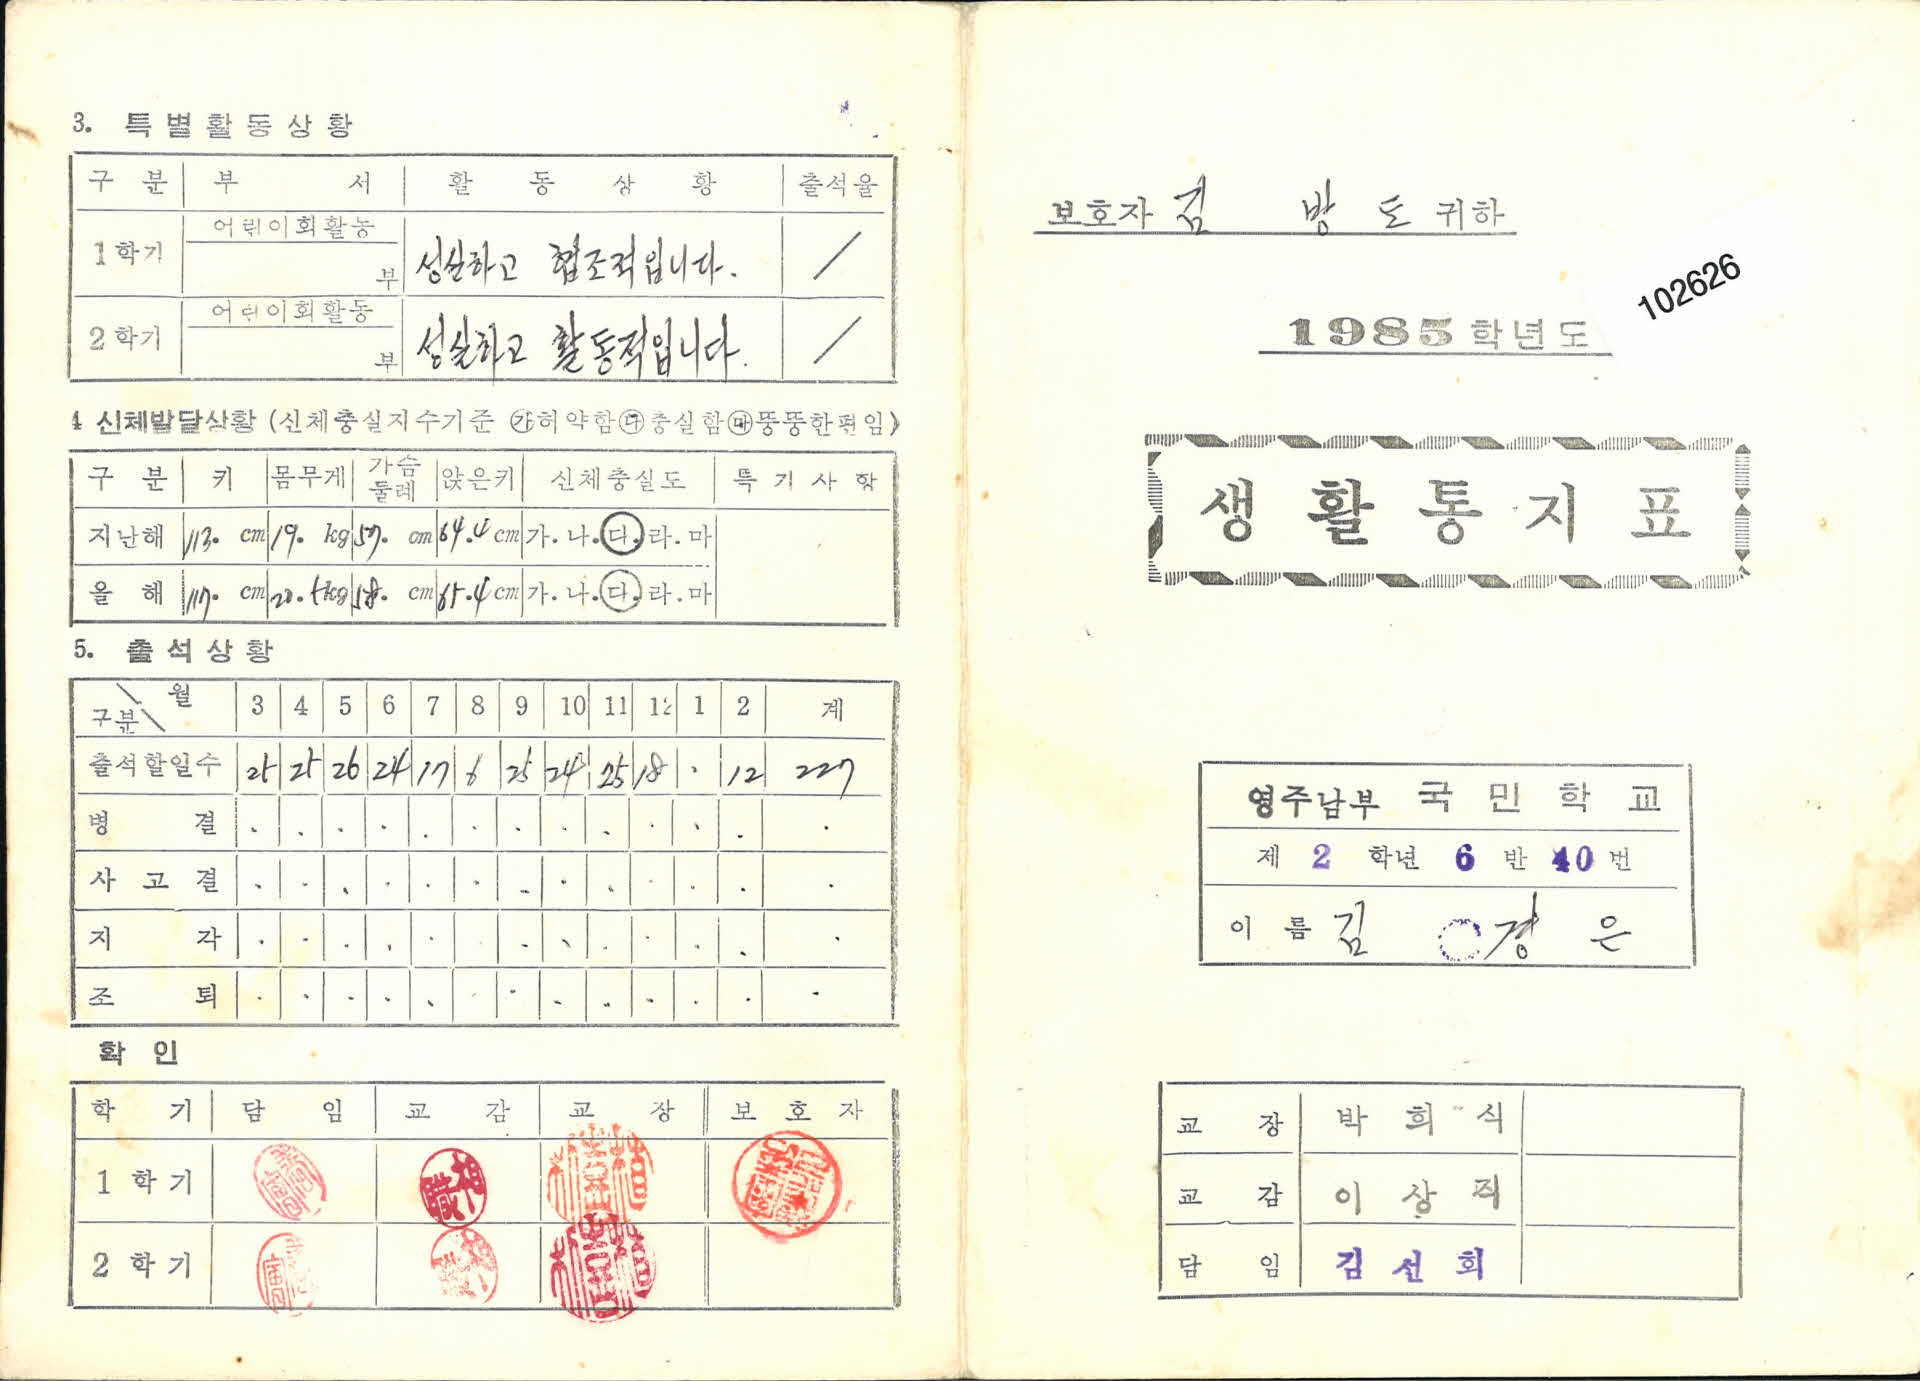 3. 특별활동상황
구 분 부 서 활 동 상 황 출석율
1학기 어린이회활동 부 성실하고 협조적입니다. /
2학기 어린이회활동 부 성실하고 활동적입니다. /
4 신체발달상황 (신체충실지수기준 ㉮허약함㉰충실함㉲뚱뚱한편임)
구 분 키 몸무게 가슴둘레 앉은키 신체충실도 특 기 사 항
지난해 113. cm 19. kg 57. cm 64.4 cm 가.나.다.라.마
올 해 117. cm 20.5 kg 58. cm 65.4 cm 가.나.다.라.마
5. 출석상황
구분 월 3 4 5 6 7 8 9 10 11 12 1 2 계
출석할일수 25 25 26 24 17 6 25 24 25 18 . 12 227
병 결 . . . . . . . . . . . . .
사 고 결 . . . . . . . . . . . . .
지 각 . . . . . . . . . . . . .
조 퇴 . . . . . . . . . . . . .
확 인
학 기 담 임 교 감 교 장 보 호 자
1 학기
2 학기
보호자 김 방 도 귀하
102626
1985학년도
생 활 통 지 표
영주남부 국 민 학 교
제 2 학년 6 반 40 번
이 름 김 경 은
교 장 박 희 식
교 감 이 상 직
담 임 김 선 희